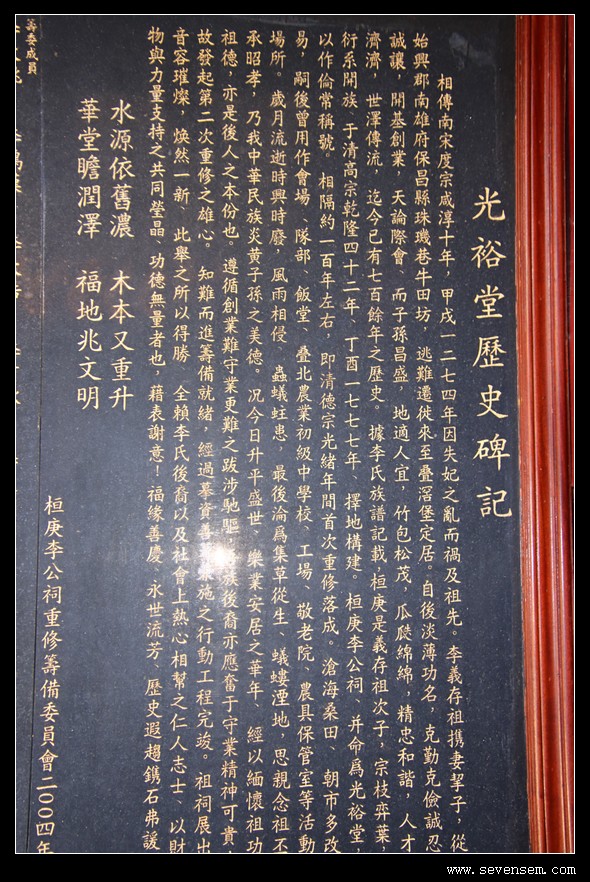 光裕堂歷史碑記
相傳南宋度宗咸淳十年，甲戌一二七四年因失妃之亂而禍及祖先。李義存祖携妻挈子，從
始興郡南雄府保昌縣珠璣巷牛田坊，逃難遷徙來至疊滘堡定居。自後淡薄功名，克勤克儉誠忍
誠讓，開基創業，天論際會、而子孫昌盛，地適人宜，竹包松茂，瓜瓞綿綿，精忠和諧，人才
濟濟，世澤傳流，迄今已有七百餘年之歷史。據李氏族譜記載桓庚是義存祖次子，宗枝弈葉，
衍系開族，于清高宗乾隆四十二年、丁酉一七七七年、擇地構建。桓庚李公祠、并命爲光裕堂，
以作倫常稱號。相隔約一百年左右，即清德宗光緒年間首次重修落成。滄海桑田、朝市多改
易，嗣後曾用作會場、隊部、飯堂、疊北農業初級中學校、工場、敬老院、農具保管室等活動
場所。歲月流逝時興時廢，風雨相侵、蟲蟻蛀患，最後淪爲集草從生、蟻螻湮地，思親念祖不
承昭孝，乃我中華民族炎黃子孫之美德。况今日升平盛世、樂業安居之華年、經以緬懷祖功
祖德，亦是後人之本份也。遵循創業難守業更難之跋涉馳驅，族後裔亦應奮于守業精神可貴，
故發起第二次重修之雄心。知難而進籌備就緒，經過募資善施之行動工程完竣。祖祠展出
音容璀燦，煥然一新、此舉之所以得勝全賴李氏後裔以及社會上熱心相幫之仁人志士、以財
物與力量支持之共同瑩晶、功德無量者也，藉表謝意！福緣善慶、永世流芳、歷史遐趨鐫石弗諼
水源依舊濃 木本又重升
華堂瞻潤澤 福地兆文明
桓庚李公祠重修籌備委員會二〇〇四年
籌委成員
www.sevensem.com